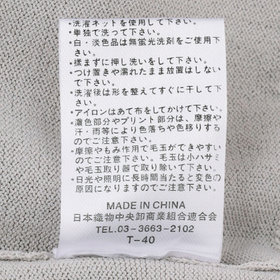 •洗濯ネットを使用して下さい。
•単独で洗って下さい。
•白・淡色品は無蛍光洗剤をご使用下さい。
•揉まずに押し洗いをして下さい。
•つけ置きや濡れたまま放置しないで下さい。
•洗濯後は形を整えてすぐに干して下さい。
•アイロンはあて布をしてかけて下さい。
•濃色部分やプリント部分は、摩擦や汗・雨等により色落ちや色移りするのでご注意下さい。
•摩擦やもみ作用で毛玉ができやすいのでご注意下さい。毛玉は小ハサミや毛玉取り器で取り除いて下さい。
•日光や照明に長時間当ると変色の原因になりますのでご注意下さい。
MADE IN CHINA
日本織物中央卸商業組合連合会
TEL.03-3663-2102
T-40